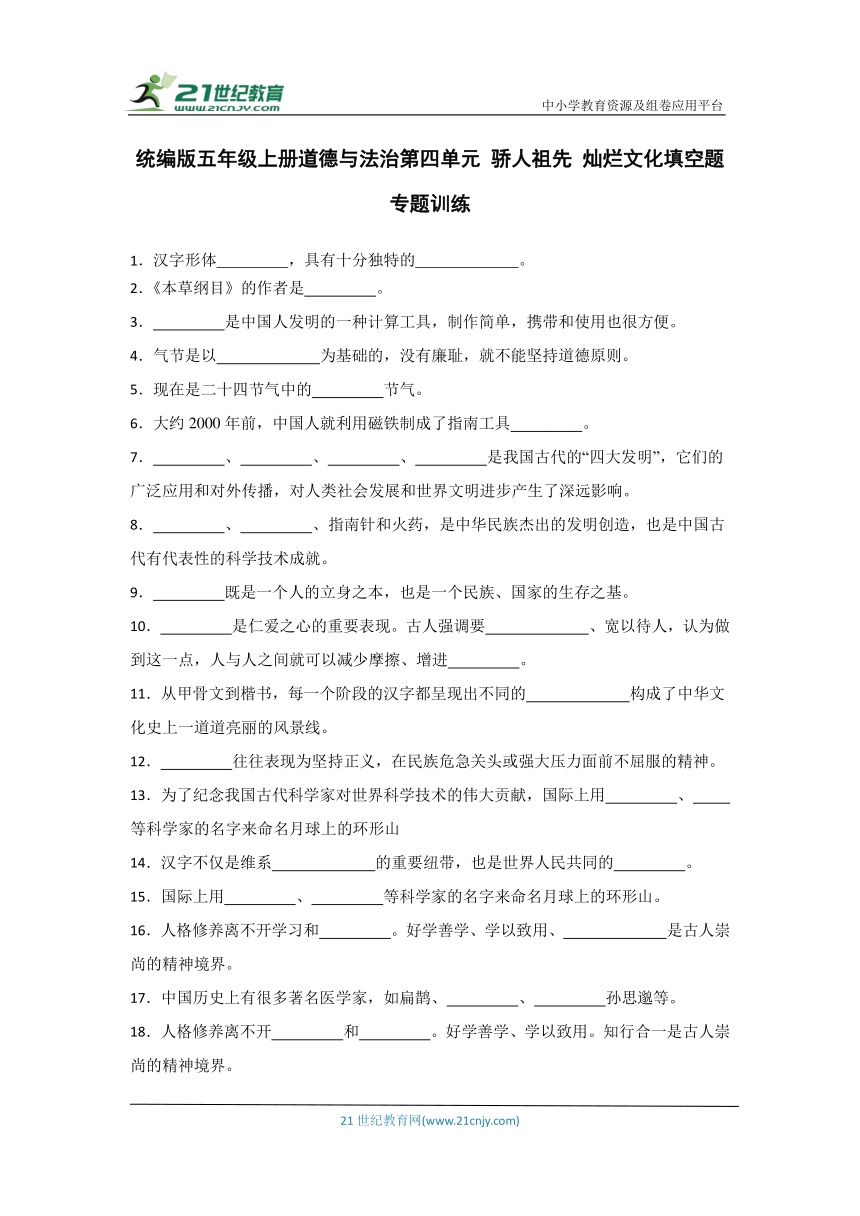 21世纪教育
WWW.21CNJY.COM
中小学教育资源及组卷应用平台
统编版五年级上册道德与法治第四单元 骄人祖先 灿烂文化填空题
专题训练
1．汉字形体_________，具有十分独特的_____________。
2.《本草纲目》的作者是_________。
3．_________是中国人发明的一种计算工具，制作简单，携带和使用也很方便。
4．气节是以_____________为基础的，没有廉耻，就不能坚持道德原则。
5．现在是二十四节气中的_________节气。
6．大约 2000 年前，中国人就利用磁铁制成了指南工具_________。
7．_________、_________、_________、_________是我国古代的“四大发明”，它们的
广泛应用和对外传播，对人类社会发展和世界文明进步产生了深远影响。
8．_________、_________、指南针和火药，是中华民族杰出的发明创造，也是中国古
代有代表性的科学技术成就。
9．_________既是一个人的立身之本，也是一个民族、国家的生存之基。
10．_________是仁爱之心的重要表现。古人强调要_____________、宽以待人，认为做
到这一点，人与人之间就可以减少摩擦、增进_________。
11．从甲骨文到楷书，每一个阶段的汉字都呈现出不同的_____________构成了中华文
化史上一道道亮丽的风景线。
12．_________往往表现为坚持正义，在民族危急关头或强大压力面前不屈服的精神。
13．为了纪念我国古代科学家对世界科学技术的伟大贡献，国际上用_________、_____
等科学家的名字来命名月球上的环形山
14．汉字不仅是维系_____________的重要纽带，也是世界人民共同的_________。
15．国际上用_________、_________等科学家的名字来命名月球上的环形山。
16．人格修养离不开学习和_________。好学善学、学以致用、_____________是古人崇
尚的精神境界。
17．中国历史上有很多著名医学家，如扁鹊、_________、_________孙思邈等。
18．人格修养离不开_________和_________。好学善学、学以致用。知行合一是古人崇
尚的精神境界。
21 世纪教育网(www.21cnjy.com)